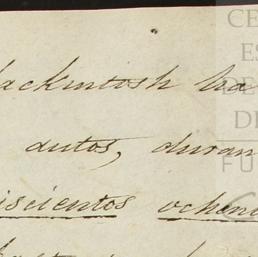 ackintosh ha
autos, duran
iscientos ochen
CE
ES
DE
DE
FU